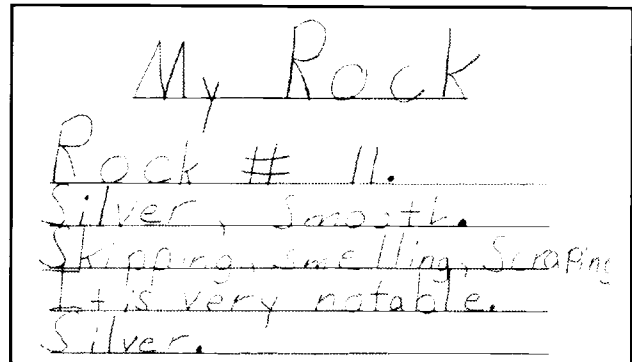 My Rock
Rock # 11.
Silver, Smooth.
Skipping, smelling, Scraping
It is very notable.
Silver.